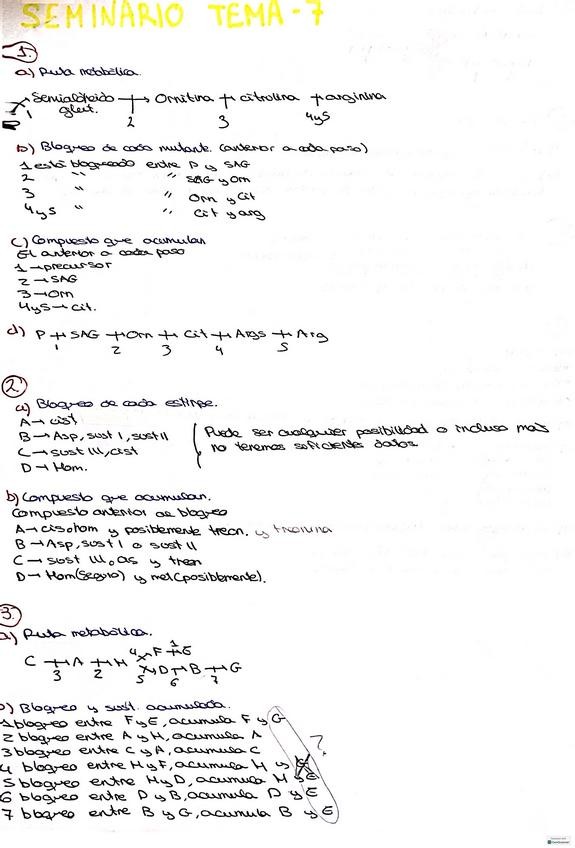 SEMINARIO TEMA-7
1.
a) Ruta metabólica.
Semialdeido glut. → Ornitina + citrulina + arginina
1 2 3 4y5
b) Bloqueo de cada mutante. (anterior a cada paso)
1 está bloqueado entre P y SAG
2 " " SAG y Orn
3 " " Orn y Cit
4y5 " " Cit y arg
c) Compuesto que acumulan
El anterior a cada paso
1 → precursor
2 → SAG
3 → Orn
4y5 → Cit.
d) P + SAG + Orn + Cit + Args + Arg
1 2 3 4 5
2.
a) Bloqueo de cada estirpe.
A → cist
B → Asp, sust I, sust II
C → sust III, cist
D → Hom.
Puede ser cualquier posibilidad o incluso mas
no tenemos suficiente datos
b) Compuesto que acumulan.
Compuesto anterior de bloqueo
A → cis, hom y posiblemente treon. y treonina
B → Asp, sust I o sust II
C → sust III, y tren
D → Hom (seguro) y met (posiblemente).
3.
a) Ruta metabólica.
4 F 1 E
C + A + H
5 D + B + G
3 2 6 7
b) Bloqueo y sust. acumulada.
1 bloqueo entre F y E, acumula F y G
2 bloqueo entre A y H, acumula A
3 bloqueo entre C y A, acumula C
4 bloqueo entre H y F, acumula H y
5 bloqueo entre H y D, acumula H y E
6 bloqueo entre D y B, acumula D y E
7 bloqueo entre B y G, acumula B y E
?
CamScanner